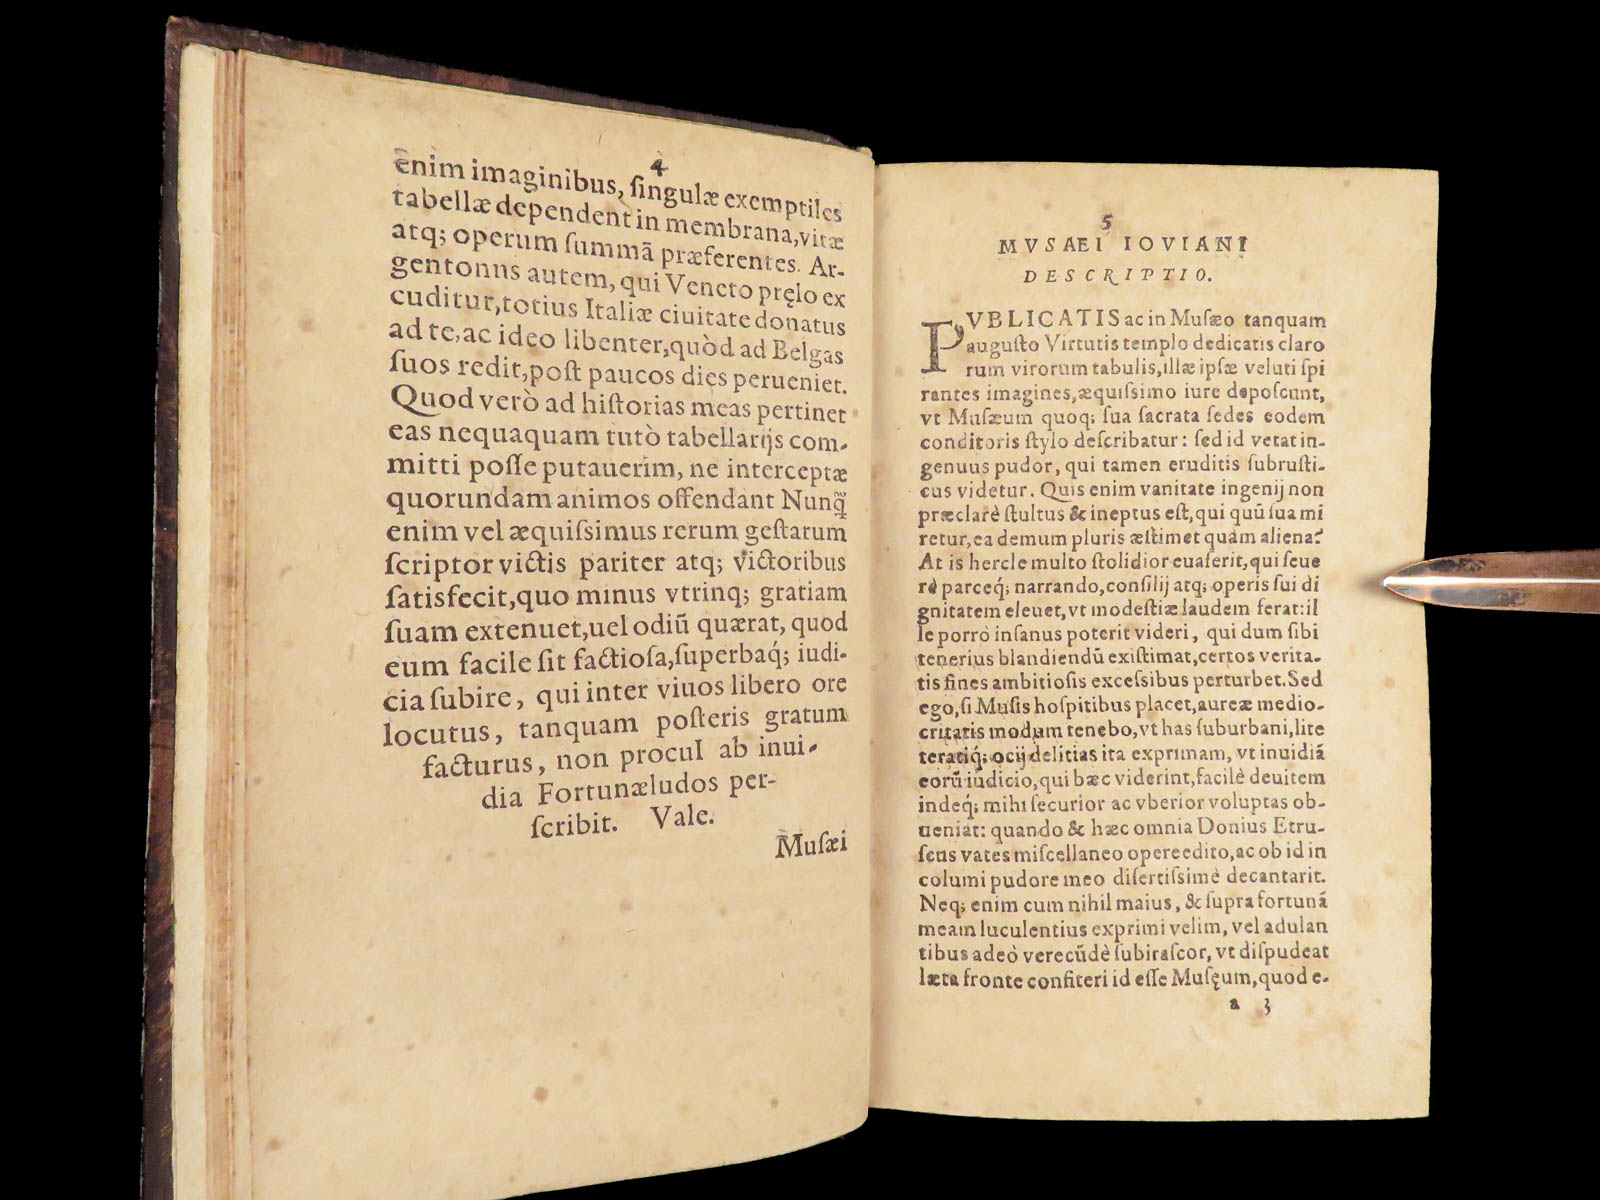 4
enim imaginibus, ſingulæ exemptiles
tabellæ dependent in membrana, vitæ
atq; operum ſummā præferentes. Ar-
gentonus autem, qui Veneto pręlo ex
cuditur, totius Italiæ ciuitate donatus
ad te, ac ideo libenter, quòd ad Belgas
ſuos redit, poſt paucos dies perueniet.
Quod verò ad hiſtorias meas pertinet
eas nequaquam tutò tabellarijs com-
mitti poſſe putauerim, ne interceptæ
quorundam animos offendant Nunq̃
enim vel æquiſsimus rerum geſtarum
ſcriptor victis pariter atq; victoribus
ſatisfecit, quo minus vtrinq; gratiam
ſuam extenuet, uel odiū quærat, quod
eum facile ſit factioſa, ſuperbaq́; iudi-
cia ſubire, qui inter viuos libero ore
locutus, tanquam poſteris gratum
facturus, non procul ab inui-
dia Fortunæ ludos per-
ſcribit. Vale.
Muſæi
5
MVSAEI IOVIANI
DESCRIPTIO.
PVBLICATIS ac in Muſæo tanquam
auguſto Virtutis templo dedicatis claro
rum virorum tabulis, illæ ipſæ veluti ſpi
rantes imagines, æquiſsimo iure depoſcunt,
vt Muſæum quoq; ſua ſacrata ſedes eodem
conditoris ſtylo deſcribatur: ſed id vetat in-
genuus pudor, qui tamen eruditis ſubruſti-
cus videtur. Quis enim vanitate ingenij non
præclarè ſtultus & ineptus eſt, qui quū ſua mi
retur, ea demum pluris æſtimet quàm aliena?
At is hercle multo ſtolidior euaſerit, qui ſeue
rè parceq́; narrando, conſilij atq; operis ſui di
gnitatem eleuet, vt modeſtiæ laudem ferat: il
le porrò inſanus poterit videri, qui dum ſibi
tenerius blandiendū exiſtimat, certos verita-
tis fines ambitioſis exceſsibus perturbet. Sed
ego, ſi Muſis hoſpitibus placet, aureæ medio-
critatis modum tenebo, vt has ſuburbani, lite
teratiq́; ocij delitias ita exprimam, vt inuidiā
eorū iudicio, qui hæc viderint, facilè deuitem
indeq́; mihi ſecurior ac vberior voluptas ob-
ueniat: quando & hæc omnia Donius Etru-
ſcus vates miſcellaneo opere edito, ac ob id in
columi pudore meo diſertiſsimè decantarit.
Neq; enim cum nihil maius, & ſupra fortunā
meam luculentius exprimi velim, vel adulan
tibus adeò verecūdè ſubiraſcor, vt diſpudeat
læta fronte confiteri id eſſe Muſęum, quod e-
a 3